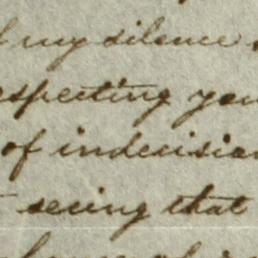 my silence
especting you
of indecision
seeing that